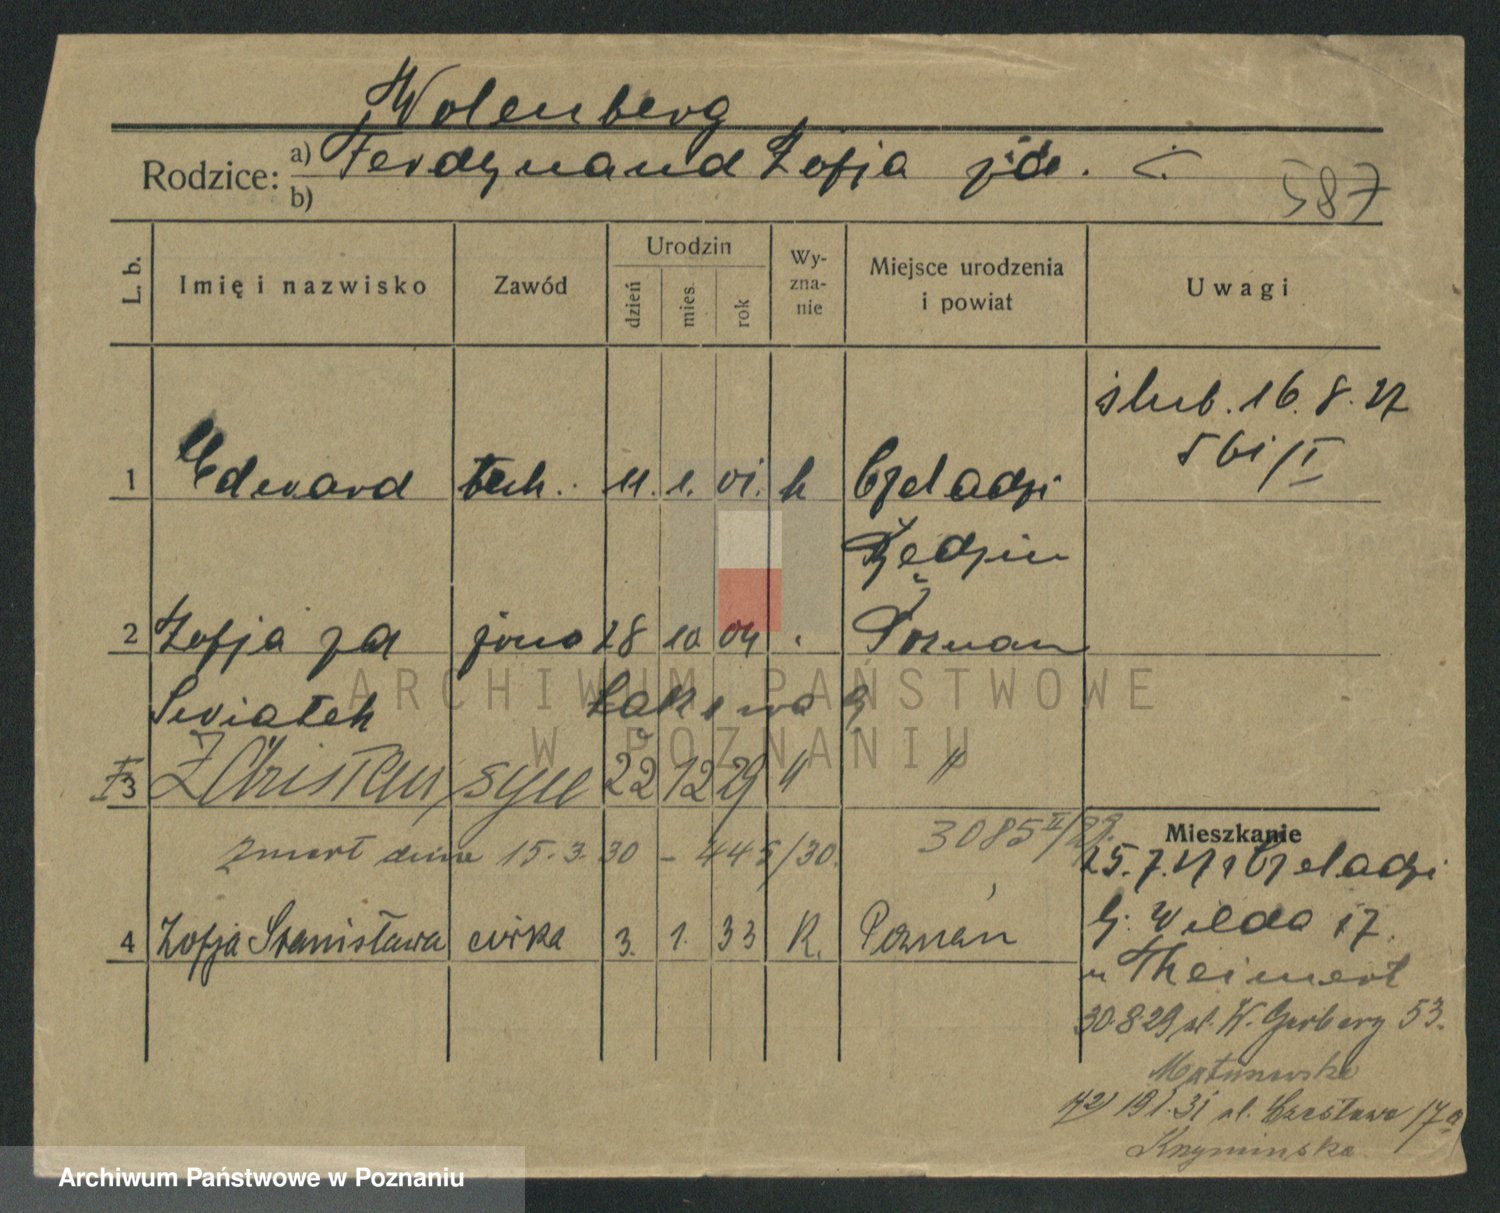 Wolenberg
Rodzice: a) Ferdynand Zofja
b)
587
L. b. Imię i nazwisko Zawód Urodzin dzień mies. rok Wy-zna-nie Miejsce urodzenia i powiat Uwagi
ślub. 16. 8. 27
561/I
1 Edward tech. 11. 1. 01. k Czeladzi
Będzin
2 Zofja zd żona 28 10 04 Poznań
Swiątek
3 syn 22 12 29 " "
zmarł dnia 15. 3. 30 - 445/30. 3085 II/29.
4 Zofja Stanisława córka 3. 1. 33 R. Poznań
Mieszkanie
25. 7. 27 z Czeladzi
G. Wilda 17.
u Theinert
30.8.29 ul. W. Garbary 53.
ul. Czesława 17a
ARCHIWUM PAŃSTWOWE
W POZNANIU
Archiwum Państwowe w Poznaniu